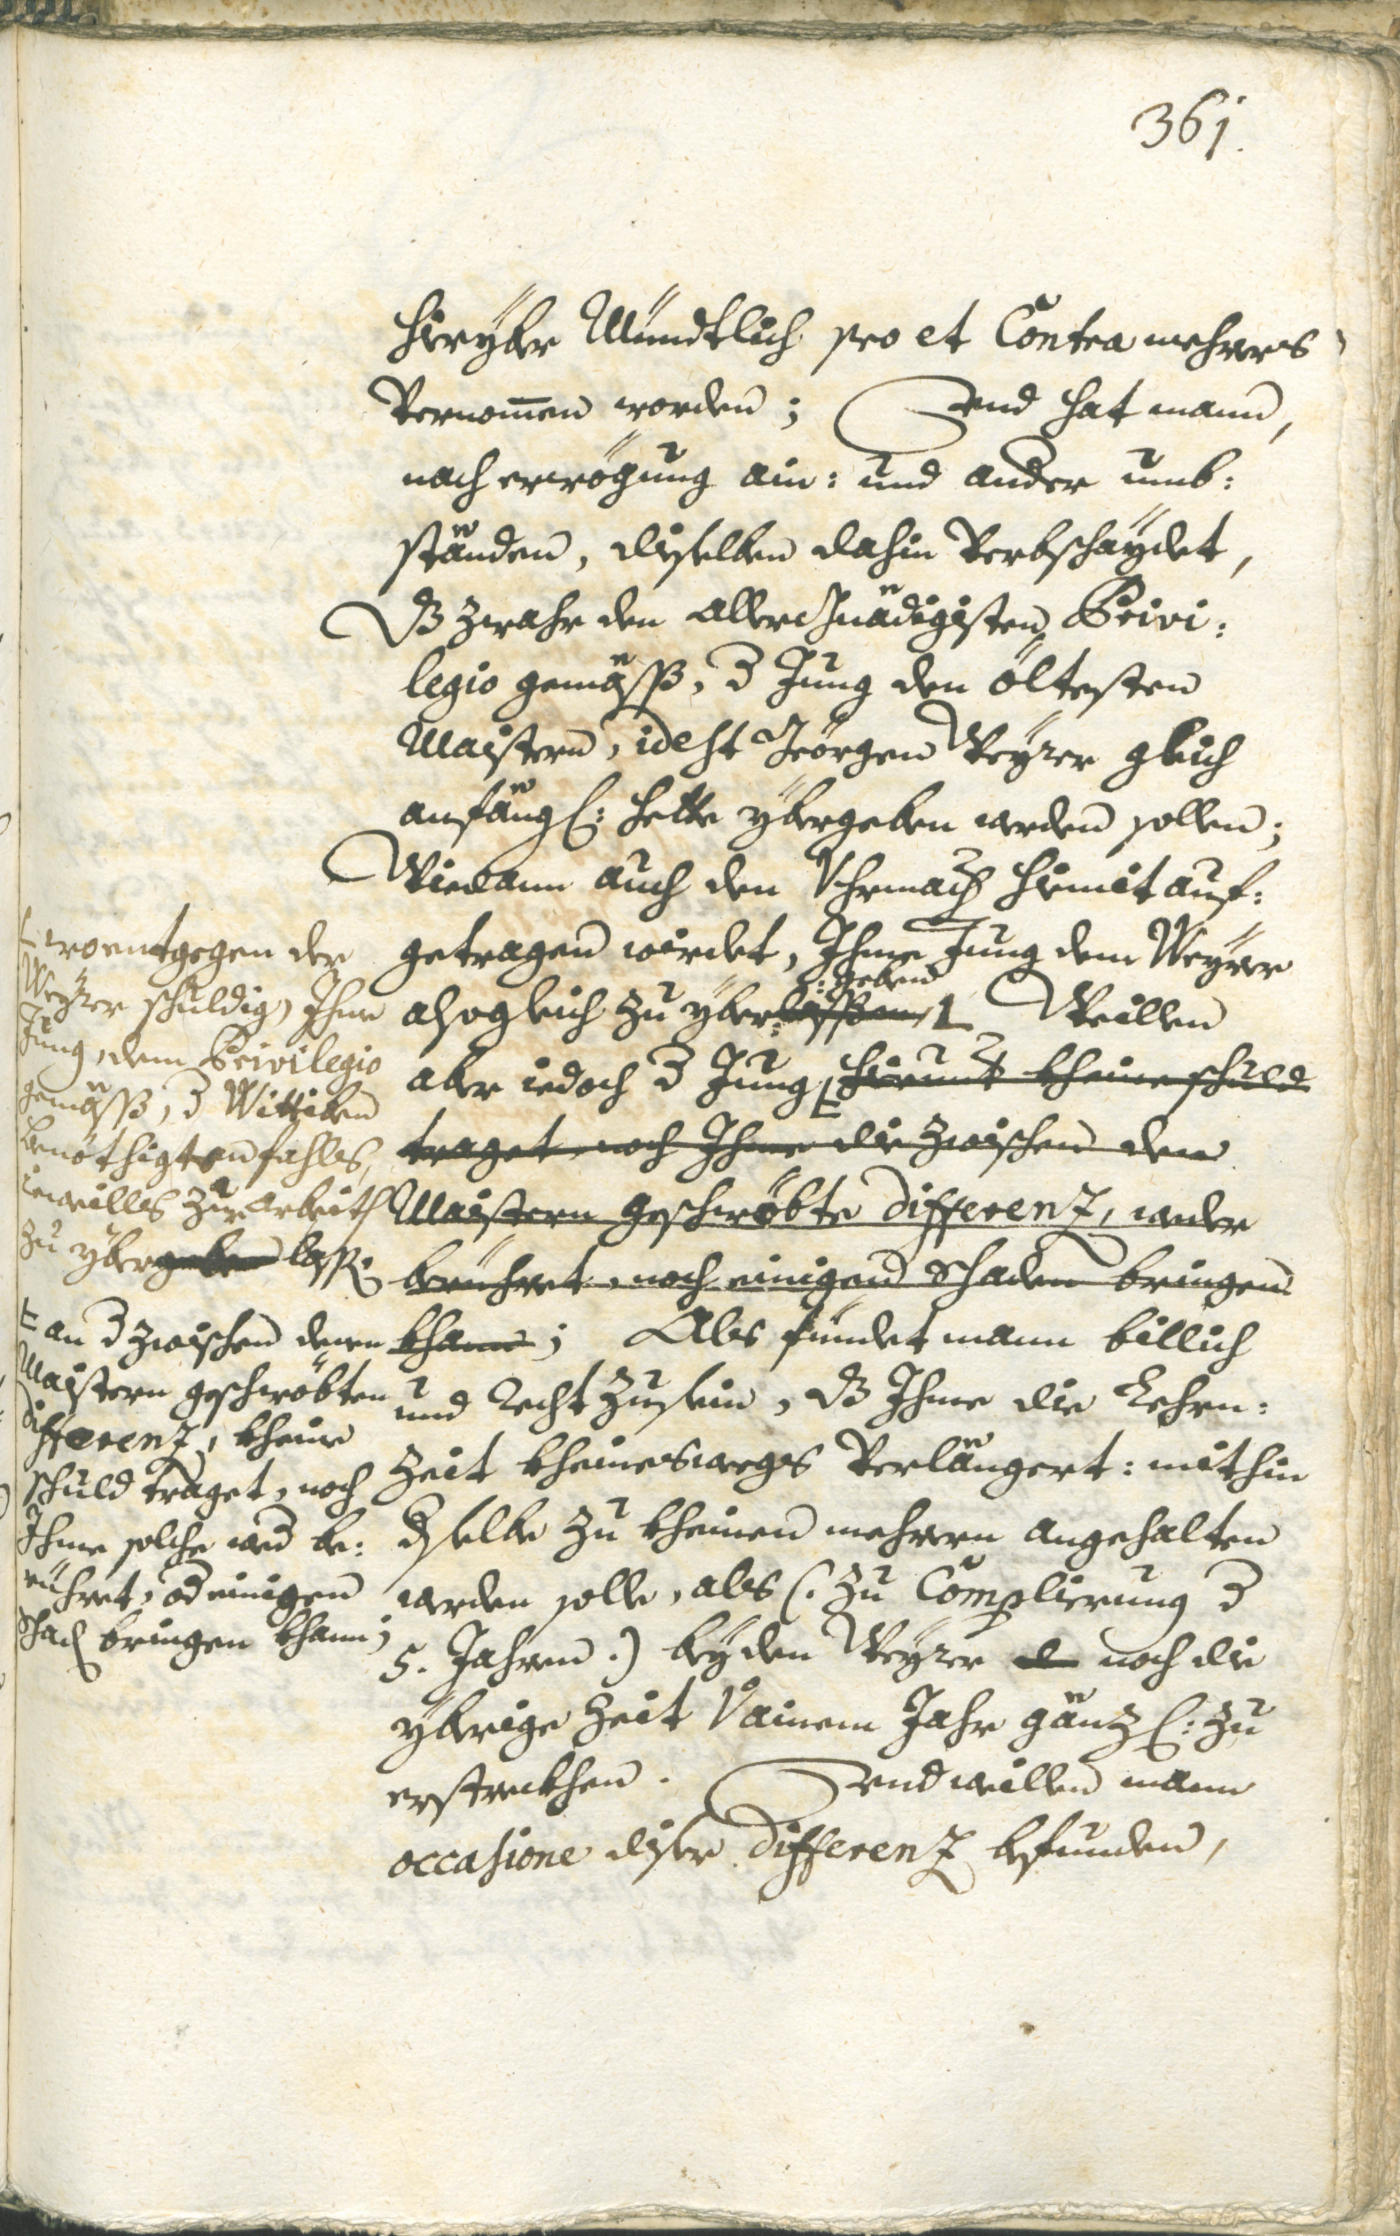 361.
hieryber Mündtlich pro et Contra mehrers
Vernommen worden; Und hat mann,
nach erwögung ain: und ander umb:
ständen, dieselben dahin Verbschaydet,
Dß zwahr den Allergnädigisten Privi:
legio gemäß, d Jung den öltesten
Maistern, idest Geörgen Weyrer gleich
anfängl: hette ybergeben werden sollen;
Wiedann auch den Uhrmach hiemit auf:
getragen wirdet, Ihme Jung dem Weyrer
geben
alsogleich zu yberlassen Weillen
aber iedoch d Jung hierunt kheine schuld
traget noch Ihme die zwischen den
Maistern geschwöbte differenz, weder
berühret, noch einigen schaden bringen
khann; Alss fündet mann billich
und Recht zu sein, dß Ihme die Lehrn:
Zeit kheineswegs Verlängert: mithin
dselbe zu kheinen mehrern angehalten
werden solle, alss (: zu Complierung d
5. Jahren :) bey den Weyrer d noch die
yberige Zeit V ainem Jahr gäntzl: zu
erstreckhen. Und weillen mann
occasione diser differenz befunden,
woentgegen der
Weyrer schuldig, Ihme
Jung, dem Privilegio
gemäß, d Wittiben
benöthigten fahls,
iewills zur arbeith
zu ybergeben lass:
an d zwischen denen
Maistern geschwöbten
differenz, kheine
schuld traget, noch
Ihme solche wed be:
rühret, od einigen
schad bringen khann;